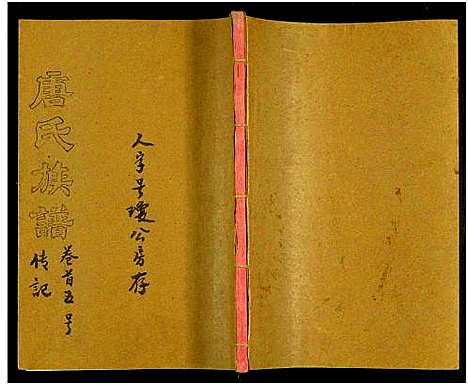 唐氏族譜
卷首五号
传記
人字号瓊公房存